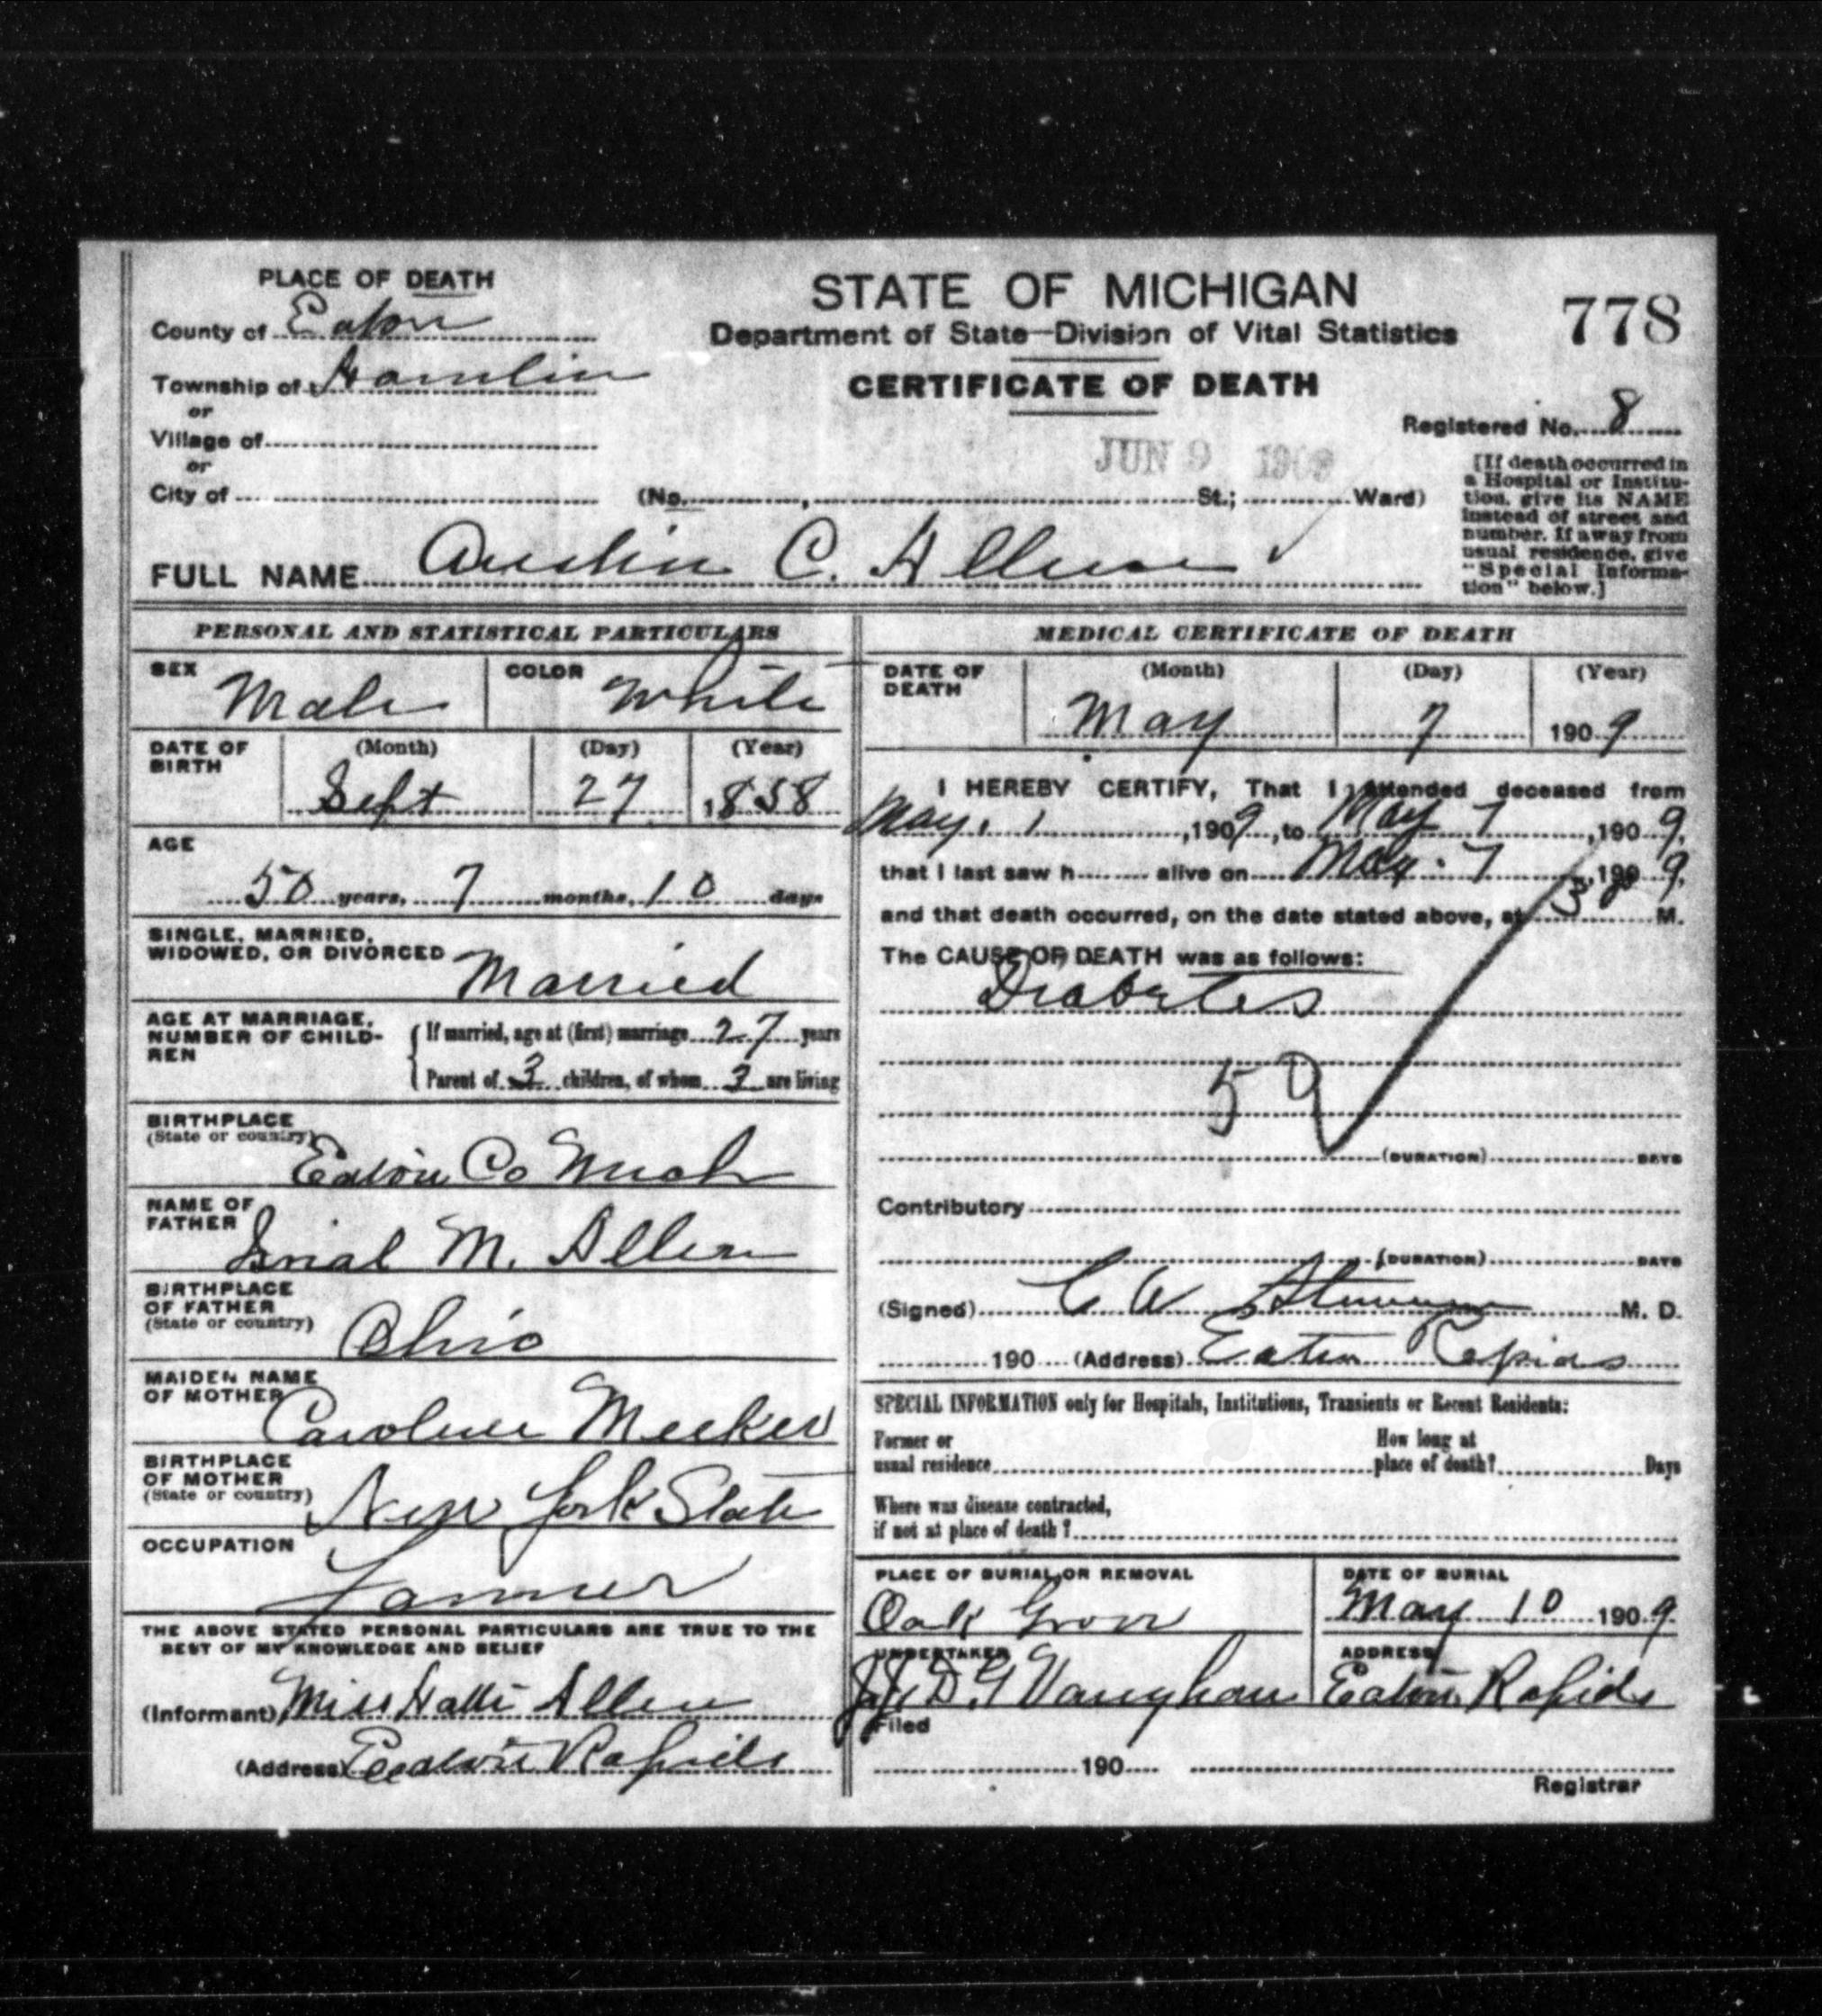 PLACE OF DEATH
County of Eaton
Township of Hamlin
or
Village of
or
City of
STATE OF MICHIGAN
Department of State—Division of Vital Statistics
CERTIFICATE OF DEATH
778
Registered No. 8
JUN 9 1909
(No. , St.; Ward)
[If death occurred in
a Hospital or Institu-
tion, give its NAME
instead of street and
number. If away from
usual residence, give
"Special Informa-
tion" below.]
FULL NAME Austin C. Allen
PERSONAL AND STATISTICAL PARTICULARS
SEX Male COLOR White
DATE OF BIRTH (Month) Sept (Day) 27 (Year) 1858
AGE
50 years, 7 months, 10 days
SINGLE, MARRIED,
WIDOWED, OR DIVORCED Married
AGE AT MARRIAGE,
NUMBER OF CHILD-
REN
If married, age at (first) marriage 27 years
Parent of 3 children, of whom 3 are living
BIRTHPLACE
(State or country)
Eaton Co Mich
NAME OF
FATHER
M. Allen
BIRTHPLACE
OF FATHER
(State or country) Ohio
MAIDEN NAME
OF MOTHER
Caroline Meeker
BIRTHPLACE
OF MOTHER
(State or country) New York State
OCCUPATION
Farmer
THE ABOVE STATED PERSONAL PARTICULARS ARE TRUE TO THE
BEST OF MY KNOWLEDGE AND BELIEF
(Informant) Miss Allen
(Address) Eaton Rapids
MEDICAL CERTIFICATE OF DEATH
DATE OF DEATH (Month) May (Day) 7 (Year) 1909
I HEREBY CERTIFY, That I attended deceased from
May 1, 1909, to May 7, 1909,
that I last saw h alive on May 7, 1909,
and that death occurred, on the date stated above, at 3 M.
The CAUSE OF DEATH was as follows:
Diabetes
(DURATION) DAYS
Contributory
(DURATION) DAYS
(Signed) C W M. D.
190 (Address) Eaton Rapids
SPECIAL INFORMATION only for Hospitals, Institutions, Transients or Recent Residents:
Former or
usual residence
How long at
place of death? Days
Where was disease contracted,
if not at place of death?
PLACE OF BURIAL OR REMOVAL
Oak Grove
DATE OF BURIAL
May 10 1909
UNDERTAKER
Vaughan
ADDRESS
Eaton Rapids
Filed
190
Registrar